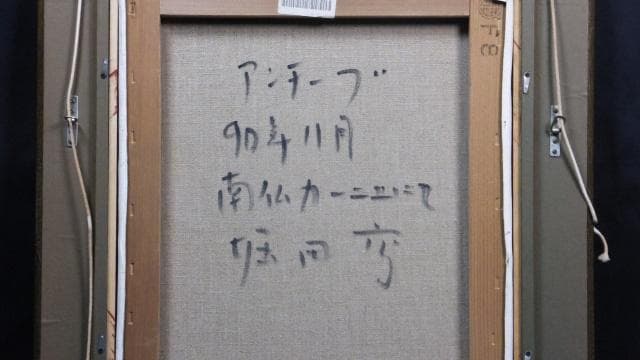 アンチーブ
90年11月
南仏カーニュにて